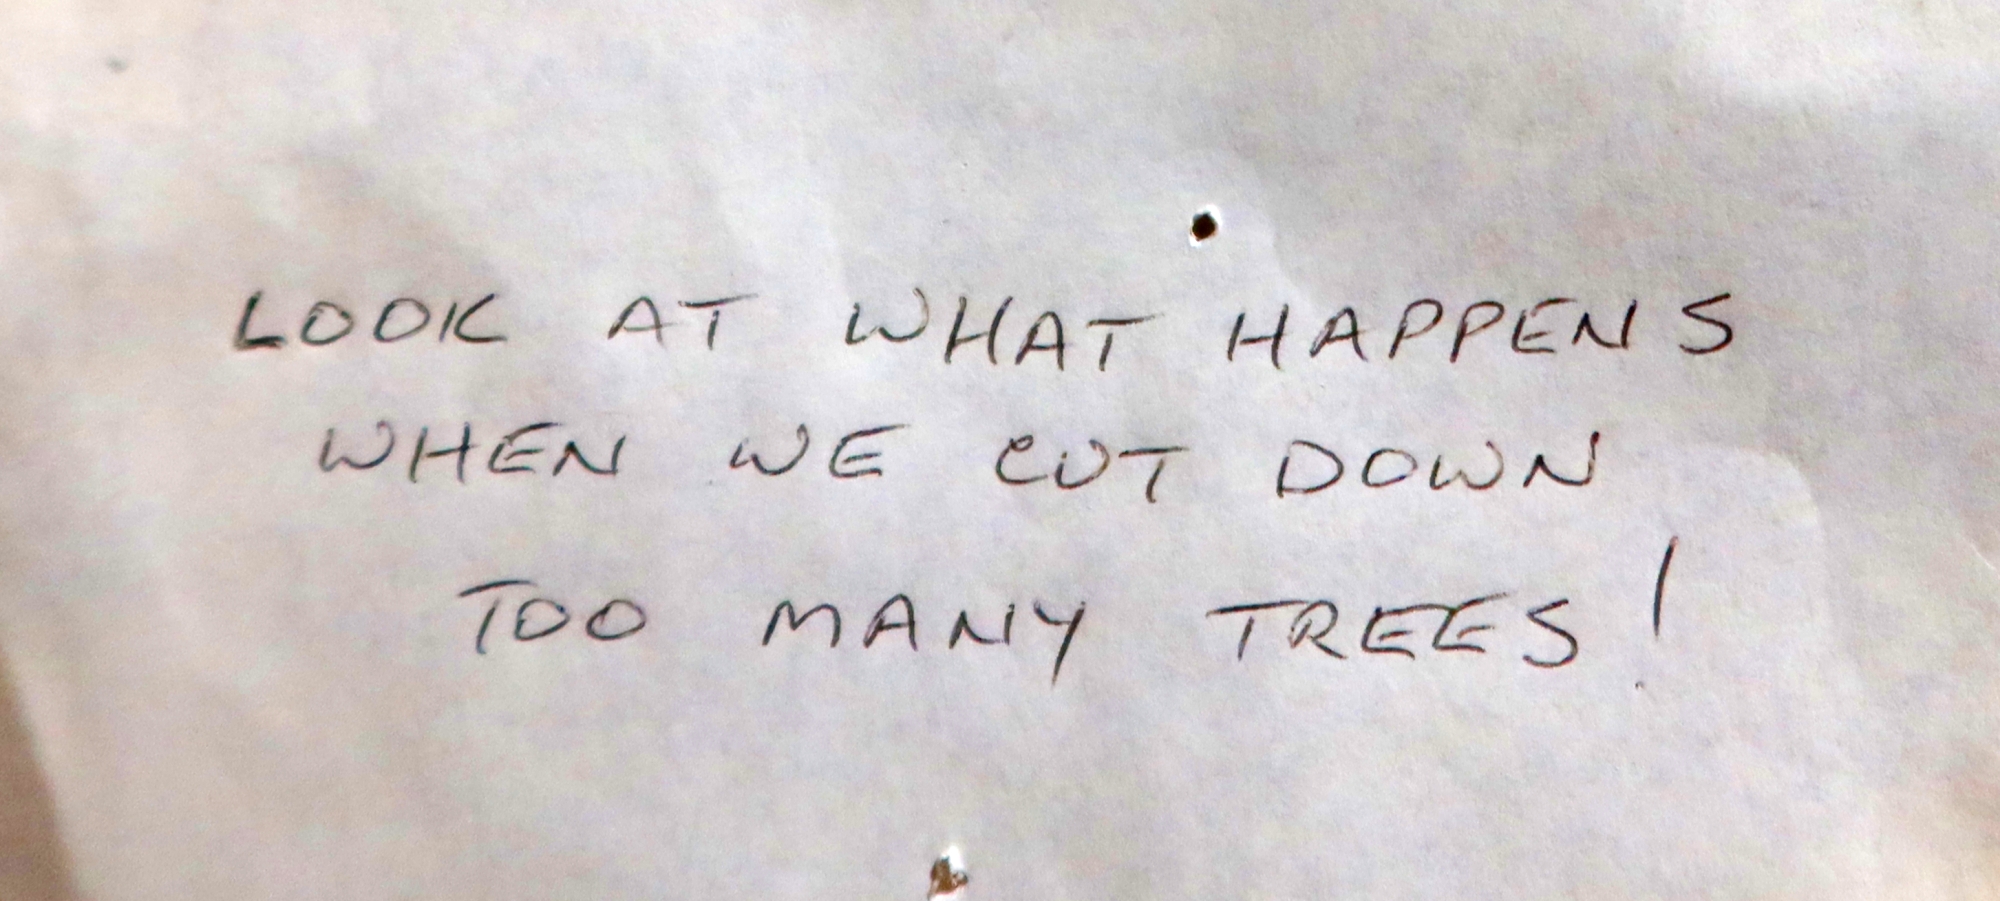 LOOK AT WHAT HAPPENS
WHEN WE CUT DOWN
TOO MANY TREES!